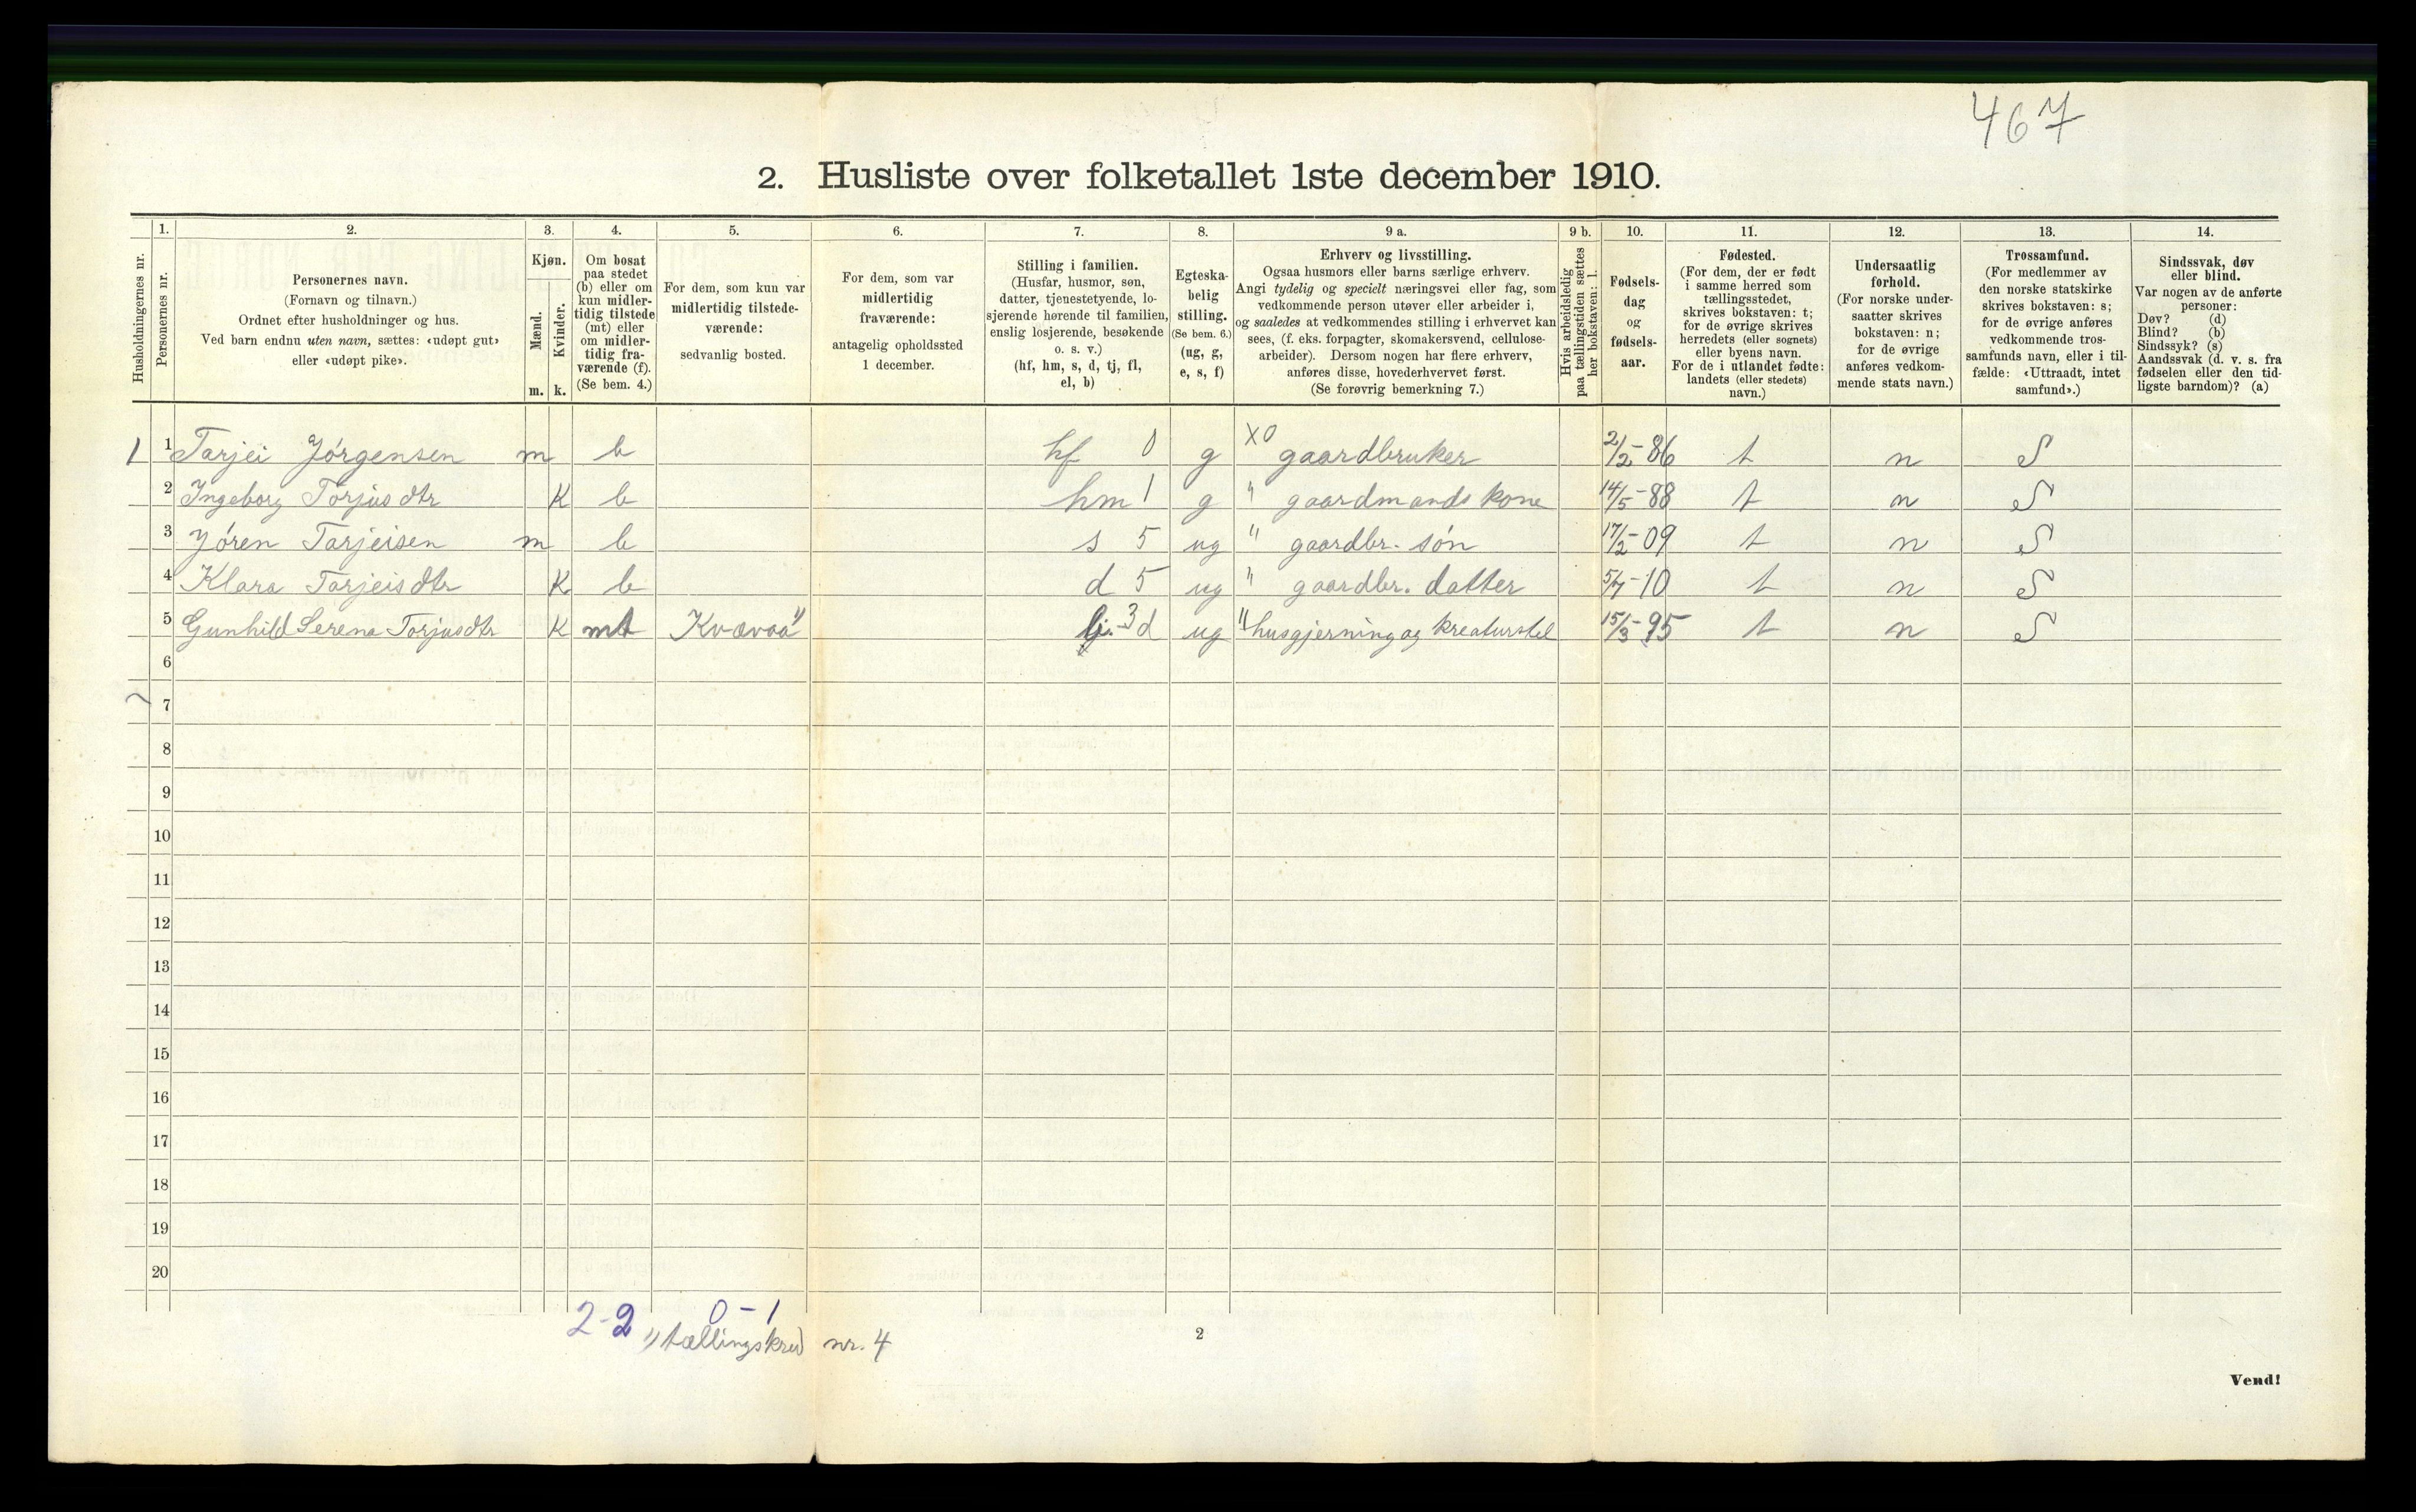 467
2. Husliste over folketallet 1ste december 1910.
Husholdningernes nr.
1.
Personernes nr.
2.
Personernes navn.
(Fornavn og tilnavn.)
Ordnet efter husholdninger og hus.
Ved barn endnu uten navn, sættes: «udøpt gut»
eller «udøpt pike».
3.
Kjøn.
Mænd.
Kvinder.
m. k.
4.
Om bosat
paa stedet
(b) eller om
kun midler-
tidig tilstede
(mt) eller
om midler-
tidig fra-
værende (f).
(Se bem. 4.)
5.
For dem, som kun var
midlertidig tilstede-
værende:
sedvanlig bosted.
6.
For dem, som var
midlertidig
fraværende:
antagelig opholdssted
1 december.
7.
Stilling i familien.
(Husfar, husmor, søn,
datter, tjenestetyende, lo-
sjerende hørende til familien,
enslig losjerende, besøkende
o. s. v.)
(hf, hm, s, d, tj, fl,
el, b)
8.
Egteska-
belig
stilling.
(Se bem. 6.)
(ug, g,
e, s, f)
9 a.
Erhverv og livsstilling.
Ogsaa husmors eller barns særlige erhverv.
Angi tydelig og specielt næringsvei eller fag, som
vedkommende person utøver eller arbeider i,
og saaledes at vedkommendes stilling i erhvervet kan
sees, (f. eks. forpagter, skomakersvend, cellulose-
arbeider). Dersom nogen har flere erhverv,
anføres disse, hovederhvervet først.
(Se forøvrig bemerkning 7.)
9 b.
Hvis arbeidsledig
paa tællingstiden sættes
her bokstaven: l.
10.
Fødsels-
dag
og
fødsels-
aar.
11.
Fødested.
(For dem, der er født
i samme herred som
tællingsstedet,
skrives bokstaven: t;
for de øvrige skrives
herredets (eller sognets)
eller byens navn.
For de i utlandet fødte:
landets (eller stedets)
navn.)
12.
Undersaatlig
forhold.
(For norske under-
saatter skrives
bokstaven: n;
for de øvrige
anføres vedkom-
mende stats navn.)
13.
Trossamfund.
(For medlemmer av
den norske statskirke
skrives bokstaven: s;
for de øvrige anføres
vedkommende tros-
samfunds navn, eller i til-
fælde: «Uttraadt, intet
samfund».)
14.
Sindssvak, døv
eller blind.
Var nogen av de anførte
personer:
Døv? (d)
Blind? (b)
Sindssyk? (s)
Aandssvak (d. v. s. fra
fødselen eller den tid-
ligste barndom)? (a)
1 1 Tarjei Jörgensen m b hf 0 g X0 gaardbruker 2/2-86 t n S
2 Ingeborg Torjusdtr K b hm 1 g " gaardmands kone 14/5-88 t n S
3 Jören Tarjeisen m b s 5 ug " gaardbr. sön 17/2-09 t n S
4 Klara Tarjeisdtr K b d 5 ug " gaardbr. datter 5/7-10 t n S
5 Gunhild Serena Torjusdtr K mt Kvævaa 3 d ug " husgjerning og kreaturstel 15/3-95 t n S
6
7
8
9
10
11
12
13
14
15
16
17
18
19
20
2-2 0-1
tællingskred nr. 4
2
Vend!